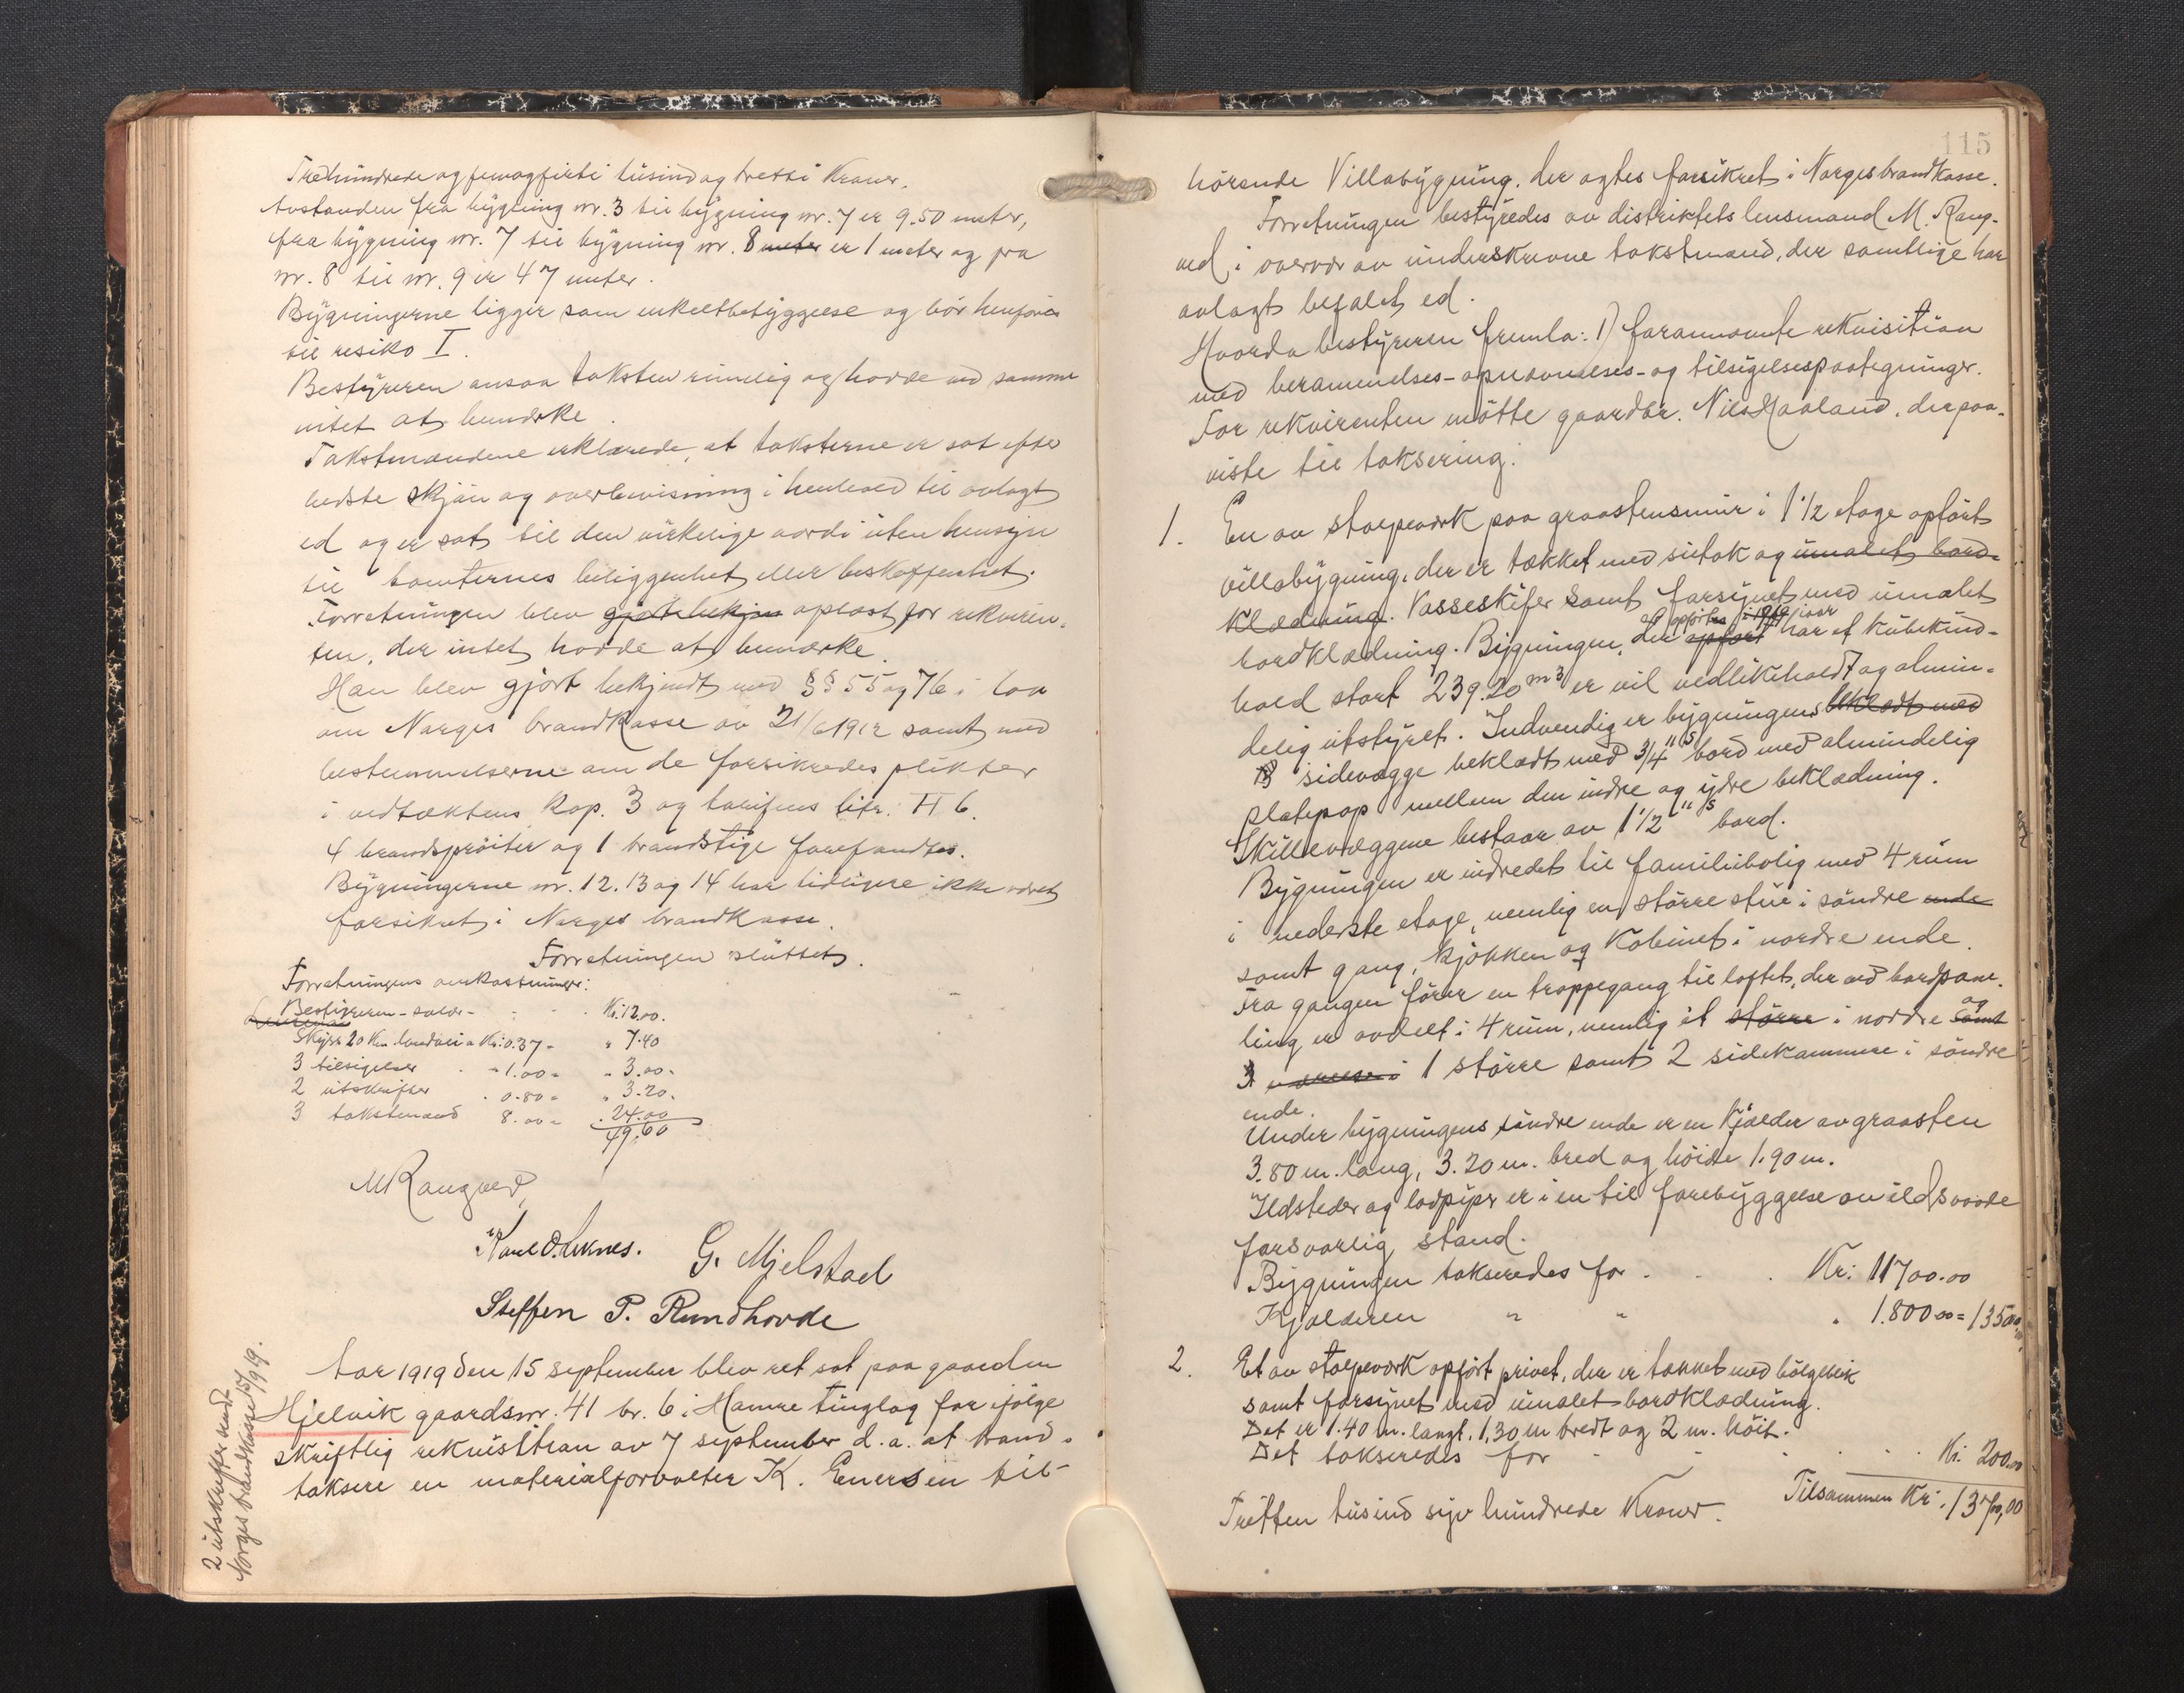 Trehundrede og femogfirti tusind og tretti Kroner.
Avstanden fra bygning nr. 3 til bygning nr. 7 er 9.50 meter,
fra bygning nr. 7 til bygning nr. 8 meter er 1 meter og fra
nr. 8 til nr. 9 er 47 meter.
Bygningerne ligger som enkeltbebyggelse og bør henføres
til risiko I.
Bestyreren ansaa taksten rimelig og hadde ved samme
intet at bemerke.
Takstmændene erklærede, at taksterne er sat efter
bedste skjøn og overbevisning i henhold til avlagt
ed og er sat til den virkelige værdi uten hensyn
til tomternes beliggenhet eller beskaffenhet.
Forretningen blev gjort bekjen oplæst for rekviren-
ten, der intet hadde at bemærke.
Han blev gjort bekjendt med §§ 55 og 76 i lov
om Norges brandkasse av 21/6 1912 samt med
bestemmelserne om de forsikredes plikter
i vedtæktens kap. 3 og tarifens litr. H 6.
4 brandsprøiter og 1 brandstige forefandtes.
Bygningerne nr. 12. 13 og 14 har tidligere ikke været
forsikret i Norges brandkasse.
Forretningen sluttet.
Forretningens omkostninger:
Bestyreren - salær - Kr. 12.00.
Skyss 20 km. landvei a Kr. 0.37 = " 7.40
3 tilsigelser " 1.00 = " 3.00.
2 utskrifter 0.80 = " 3.20.
3 takstmænd 8.00 = 24.00
49.60
M Rangved
Karl O. Leknes. G. Mjelstad
Steffen P. Rundhovde
Aar 1919 den 15 september blev ret sat paa gaarden
Hjelvik gaardsnr. 41 br. 6 i Hamre tinglag for ifølge
skriftlig rekvisition av 7 september d.a. at brand-
taksere en materialforvalter K. Enersen til-
2 utskrifter sendt
Norges brandkasse 15/9 1919.
115
hørende Villabygning. der agtes forsikret i Norges brandkasse.
Forretningen bestyredes av distriktets lensmand M. Rang-
ved i overvær av underskrevne takstmænd, der samtlige har
avlagt befalet ed.
Hvorda bestyreren fremla: 1) forannævnte rekvisition
med berammelses- opnævnelses- og tilsigelsespaategninger.
For rekvirenten møtte gaardbr. Nils Haaland, der paa-
viste til taksering.
1. En av stolpeværk paa graastensmur i 1 1/2 etage opført
villabygning, der er tækket med sutak og umalet bord-
klædning. Vosseskifer samt forsynet med umalet
er opført i 1919 iaar
bordklædning. Bygningen, der opført har et kubikind-
hold stort 239.20 m3 er vil vedlikeholdt og almin-
delig utstyret. Indvendig er bygningens beklædt med
sidevægge beklædt med 3/4 "s bord med almindelig
platepap mellem den indre og ydre beklædning.
Skillevæggene bestaar av 1 1/2 "s bord.
Bygningen er indredet til familiebolig med 4 rum
i nederste etage, nemlig en større stue i søndre ende
samt gang, kjøkken og Kabinet i nordre ende.
Fra gangen fører en trappegang til loftet, der ved bordpane-
ling er avdelt i 4 rum, nemlig et større i nordre samt og
3 værelser i 1 større samt 2 sidekammere i søndre
ende.
Under bygningens søndre ende er en Kjælder av graasten
3.80 m. lang, 3.20 m. bred og høide 1.90 m.
Ildsteder og lodpiper er i en til forebyggelse av ildsvaade
forsvarlig stand.
Bygningen takseredes for . . . Kr: 11700.00
Kjælderen " " . 1.800 00 = 13500,00
2. Et av stolpeværk opført privet, der er tækket med bølgeblik
samt forsynet med umalet bordklædning.
Det er 1.40 m. langt, 1,30 m bredt og 2 m. høit.
Det takseredes for . . . Kr. 200.00
Tilsammen Kr. 13700,00
Tretten tusind syv hundrede Kroner.